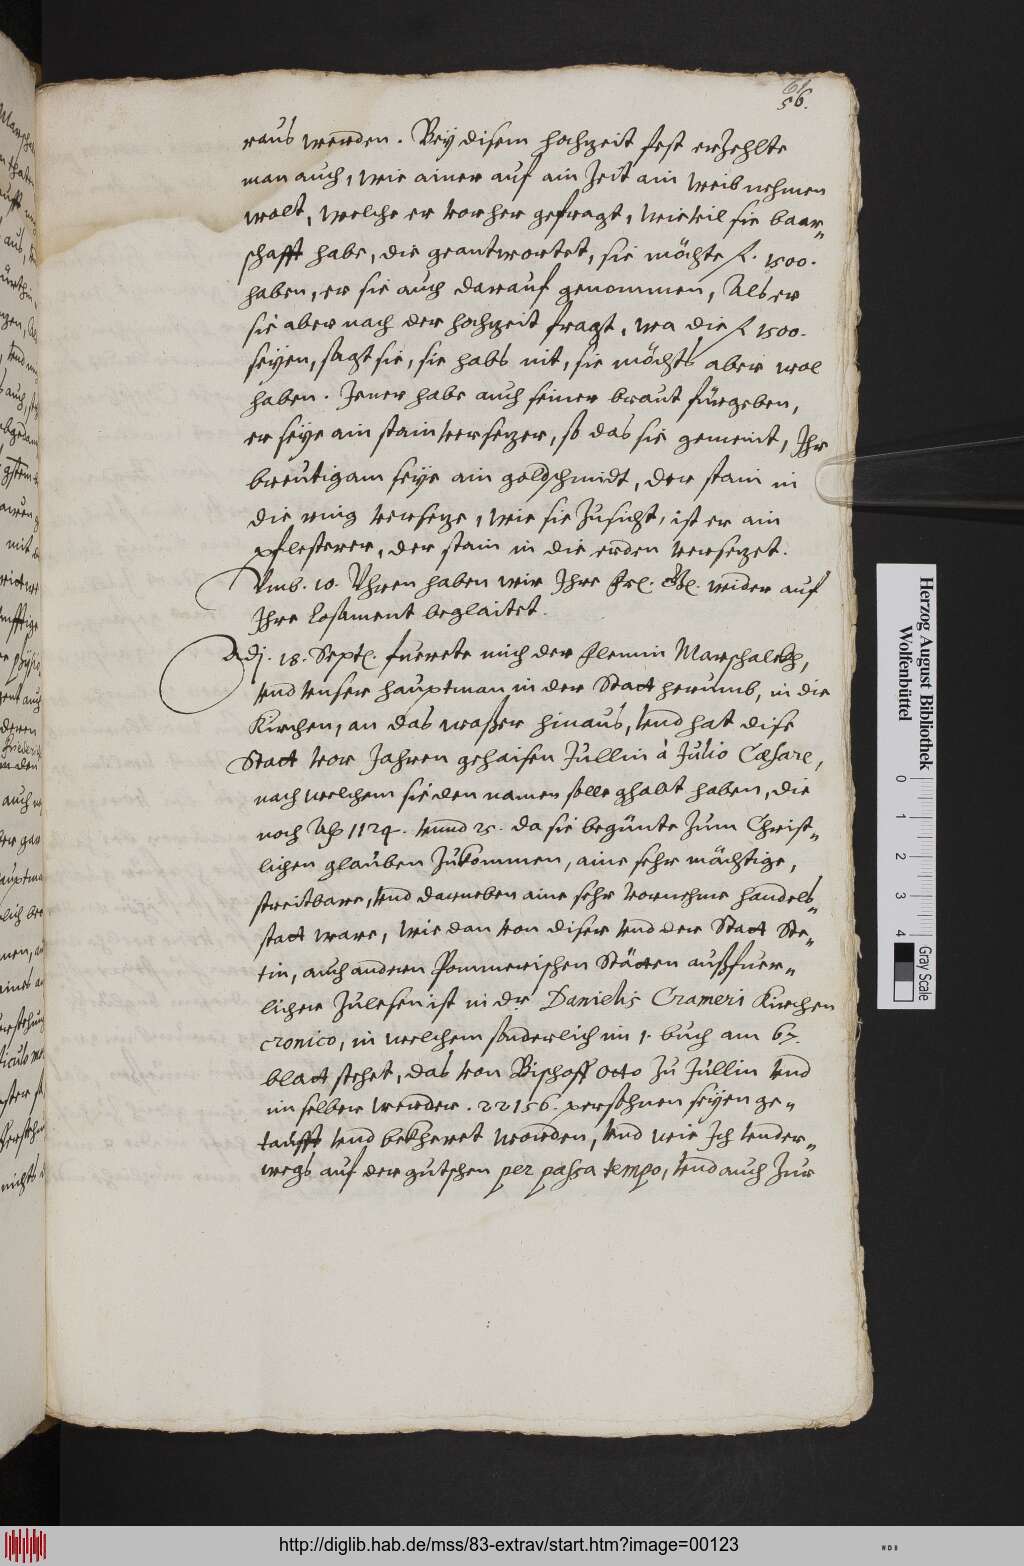 61
56.
raus werden. Bey disem hochzeit fest erzehlte
man auch, wie ainer auf ain Zeit ain weib nehmen
wolt, welche er vorher gefragt, wievil sie baar„
schafft habe, die geantwortet, sie möchte f. 1500.
haben, er sie auch darauf genommen, Als er
sie aber nach der hochzeit fragt, wa die f. 1500.
seyen, sagt sie, sie habs nit, sie möchts aber wol
haben. Jener habe auch seiner braut fürgeben,
er seye ain stainversezer, so das sie gemeint, Ihr
breutigam seye ain goldschmidt, der stain in
die ring verseze, wie sie Zusicht, ist er ain
pflesterer, der stain in die erden versezet.
Vmb. 10. Vhren haben wir Ihre Frl. Gl. wider auf
Ihre Losament beglaitet.
Adj. 18. Septl. fuerete mich der Flemin Marschalckh,
vnd vnser hauptman in der Statt herumb, in die
Kirchen, an das waßer hinaus, vnd hat dise
Statt vor Jahren gehaisen Jullin à Julio Cæsare,
nach welchem sie den namen solle ghabt haben, die
noch Aō 1124. vnnd 25. da sie begunte Zum Christ„
lichen glauben Zukommen, aine sehr mächtige,
streitbare, vnd darneben aine sehr vornehme handels„
statt ware, wie dan von diser vnd der Statt Ste„
tin, auch andern Pommerischen Stätten außfuer„
licher Zulesen ist in dr. Danielis Crameri Kirchen
cronico, in welchem sonderlich im 1. buch am 67.
blatt stehet, das von Bischoff Otto Zu Jullin vnd
im selben werder. 22156. persohnen seyen ge„
taufft vnd bekheret worden, vnd wie Ich vnder„
wegs auf der gutschen per passa tempo, vnd auch Zur
Herzog August Bibliothek
Wolfenbüttel
0 1 2 3 4
Gray Scale
http://diglib.hab.de/mss/83-extrav/start.htm?image=00123
WDB